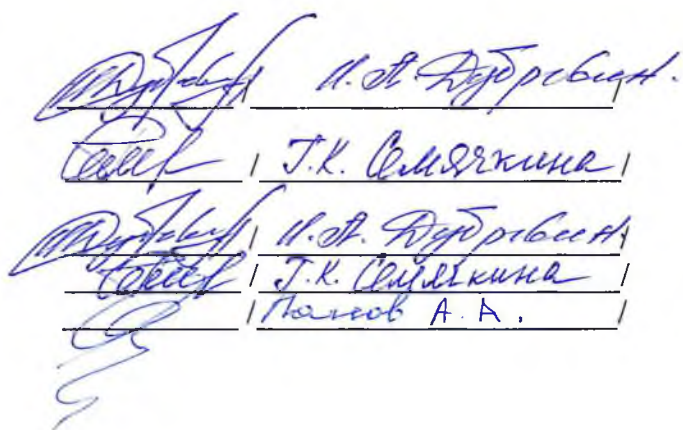 / И.А. Дубровин. /
/ Т.К. Семячкина /
/ И.А. Дубровин /
/ Т.К. Семячкина /
/ Панов А.А. /